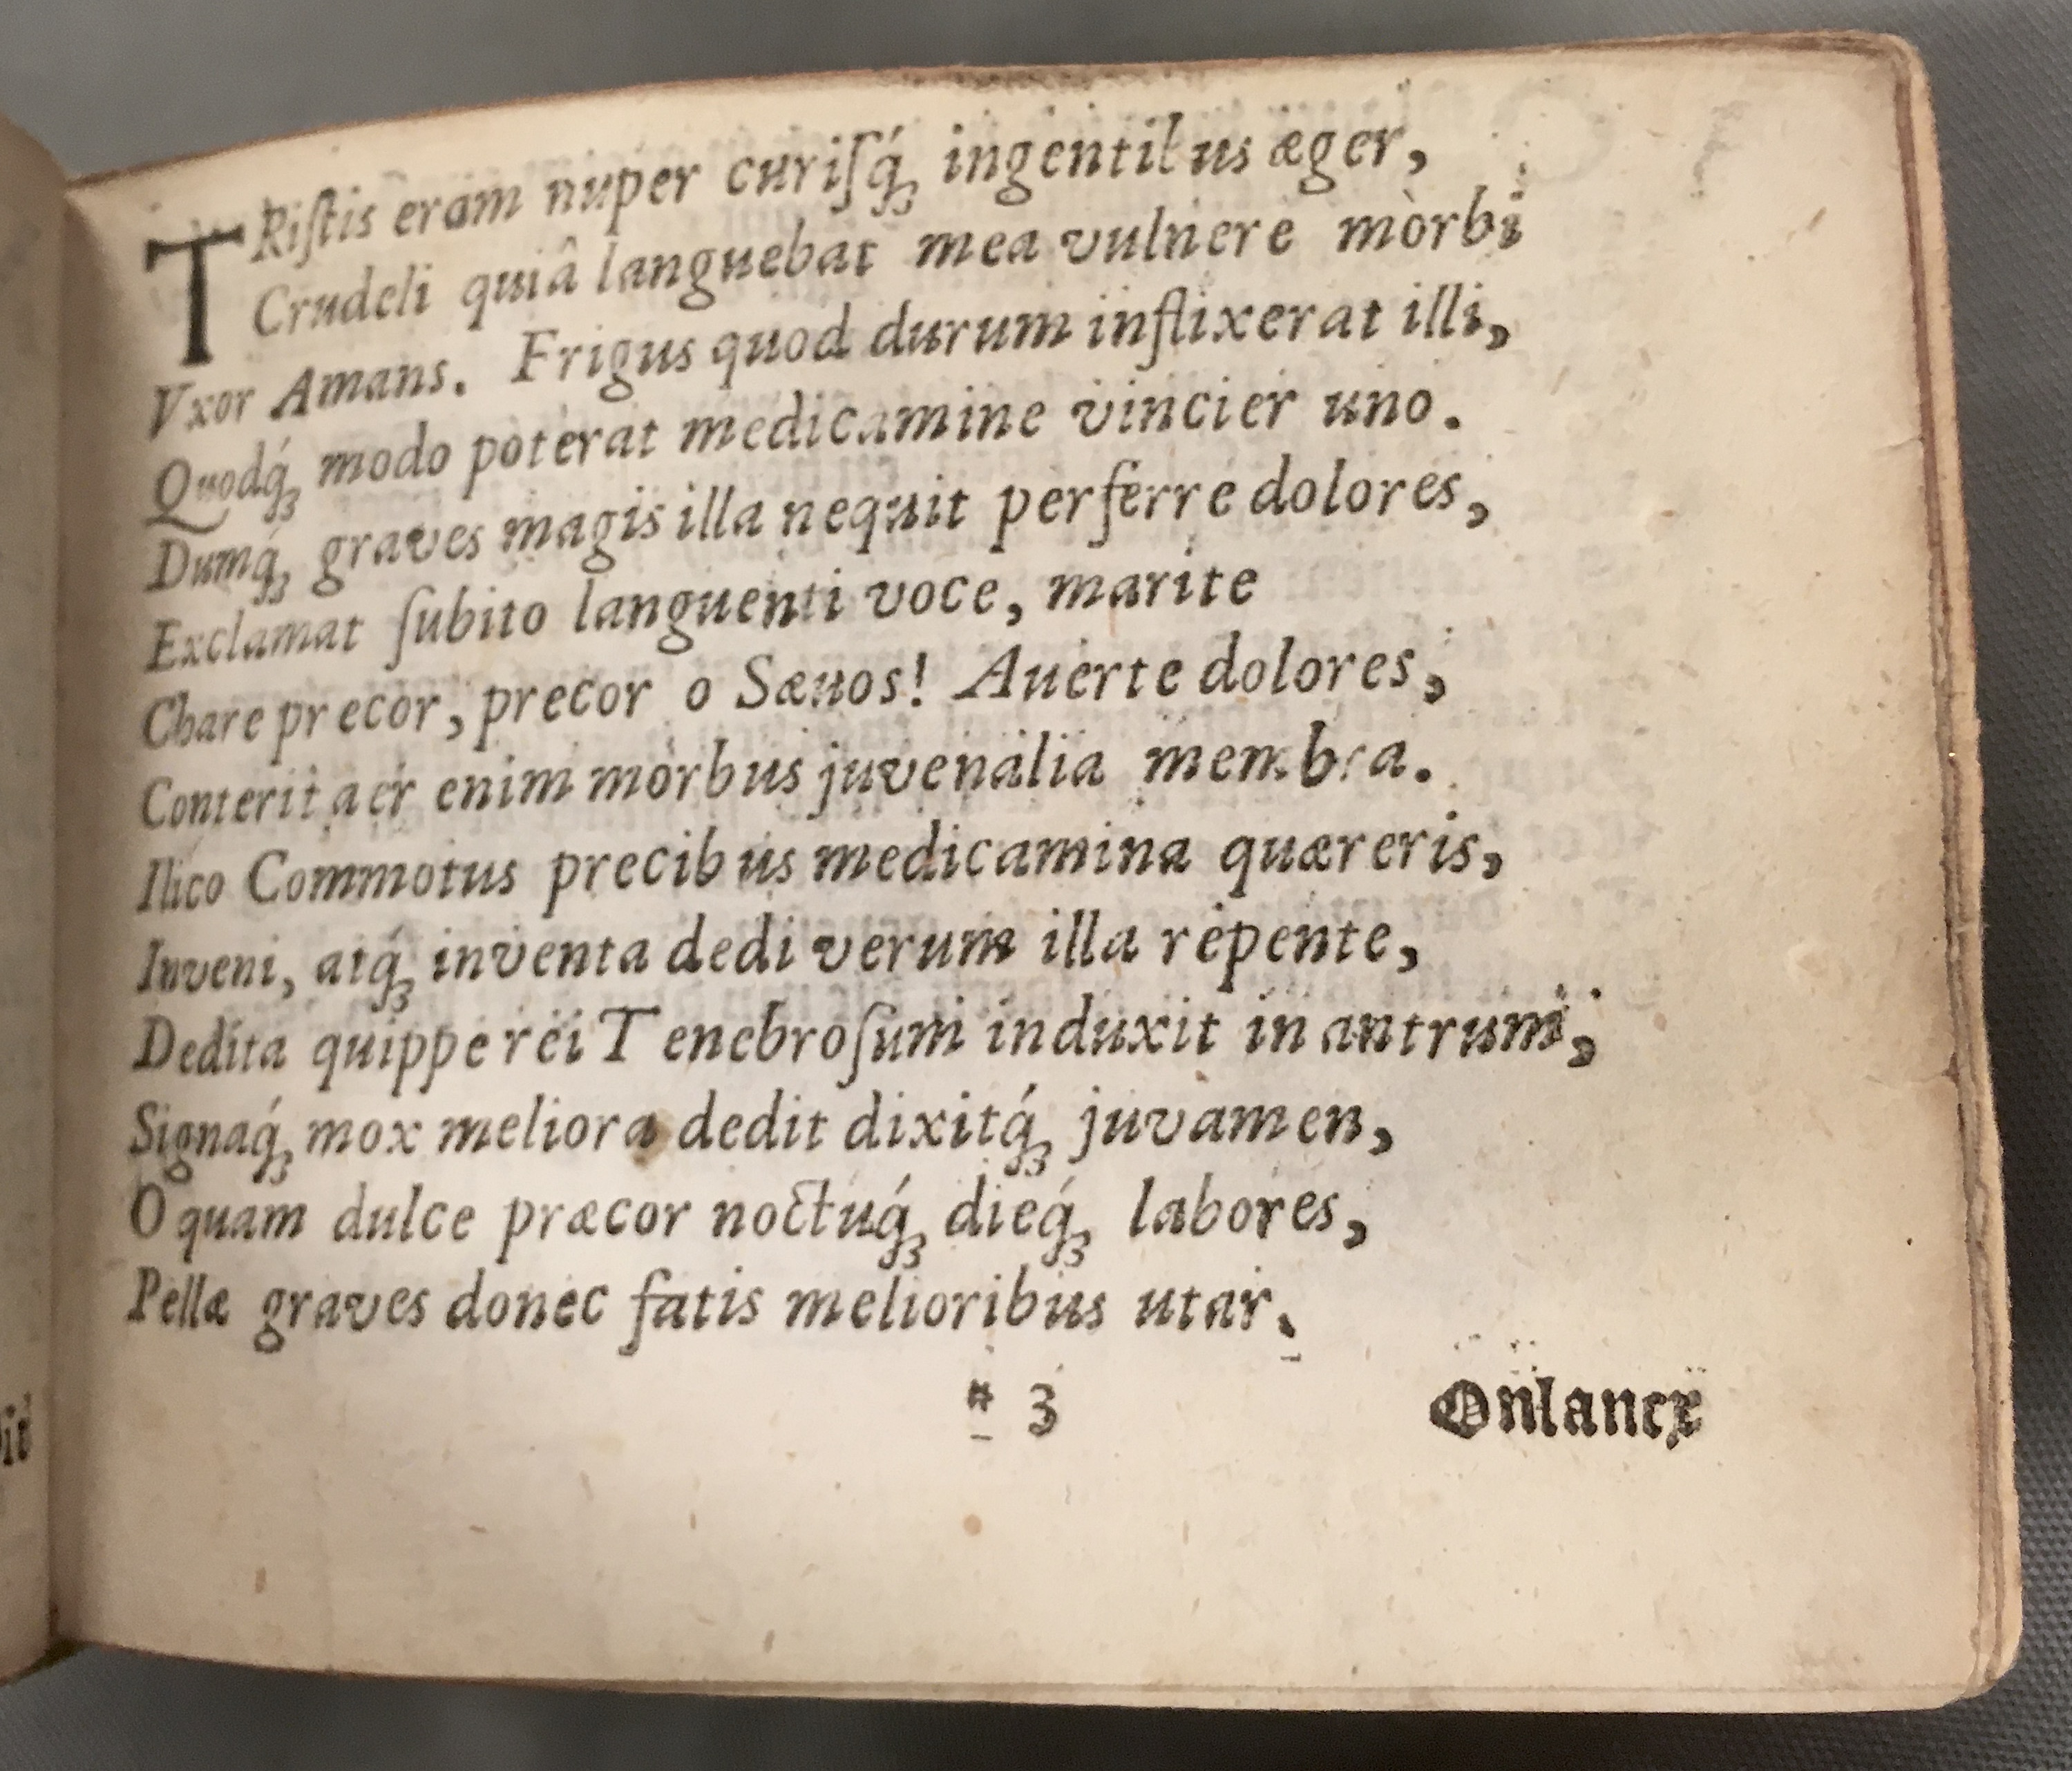 TRiſtis eram nuper curiſq́ꝫ ingentibus æger,
Crudeli quiâ languebat mea vulnere morbi
Vxor Amans. Frigus quod durum inflixerat illi,
Quodq́ꝫ modo poterat medicamine vincier uno.
Dumq́ꝫ graves magis illa nequit perferre dolores,
Exclamat ſubito languenti voce, marite
Chare precor, precor o Sæuos! Auerte dolores,
Conterit acr enim morbus juvenalia membra.
Ilico Commotus precibus medicamina quæreris,
Inveni, atq́ꝫ inventa dedi verum illa repente,
Dedita quippe rei Tenebroſum induxit in antrum,
Signaq́ꝫ mox meliora dedit dixitq́ꝫ juvamen,
O quam dulce præcor noctuq́ꝫ dieq́ꝫ labores,
Pellæ graves donec fatis melioribus utar.
* 3
Onlancx